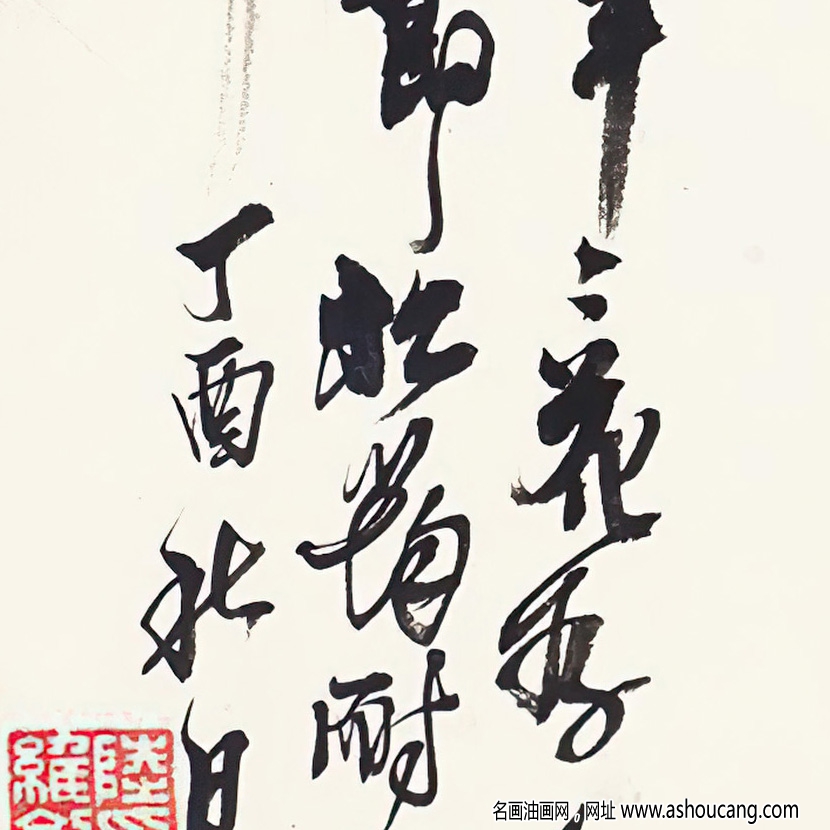 花
節松筠耐
丁酉秋日
陸
維
名画油画网。网址 www.ashoucang.com